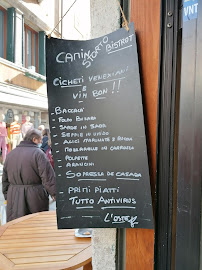 VNT
CAMINANTO
BISTROT
CICHETI VENEXIANI
E
VIN BON!!
- BACCALÀ
- FOLPI BISATO
- SARDE IN SAOR
- SEPPIE IN UMIDO
- ALICI MARINATE E
- MOZZARELLE IN CARROZZA
- POLPETTE
- ARANCINI
- SOPRESSA DE CASADA
- PRIMI PIATTI
TUTTO ANTIVIRUS
L'OSTE